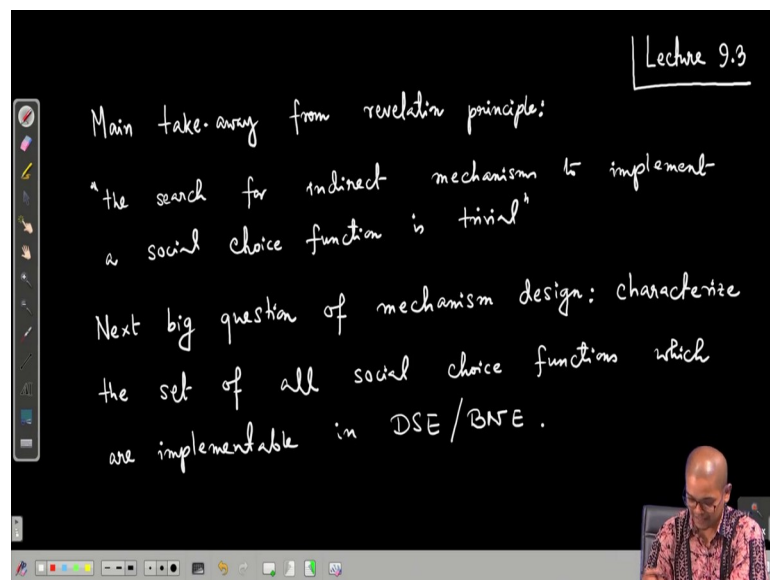 Lecture 9.3
Main take-away from revelatin principle:
"the search for indirect mechanism to implement
a social choice function is trivial"
Next big question of mechanism design: characterize
the set of all social choice functions which
are implementable in DSE/BNE.